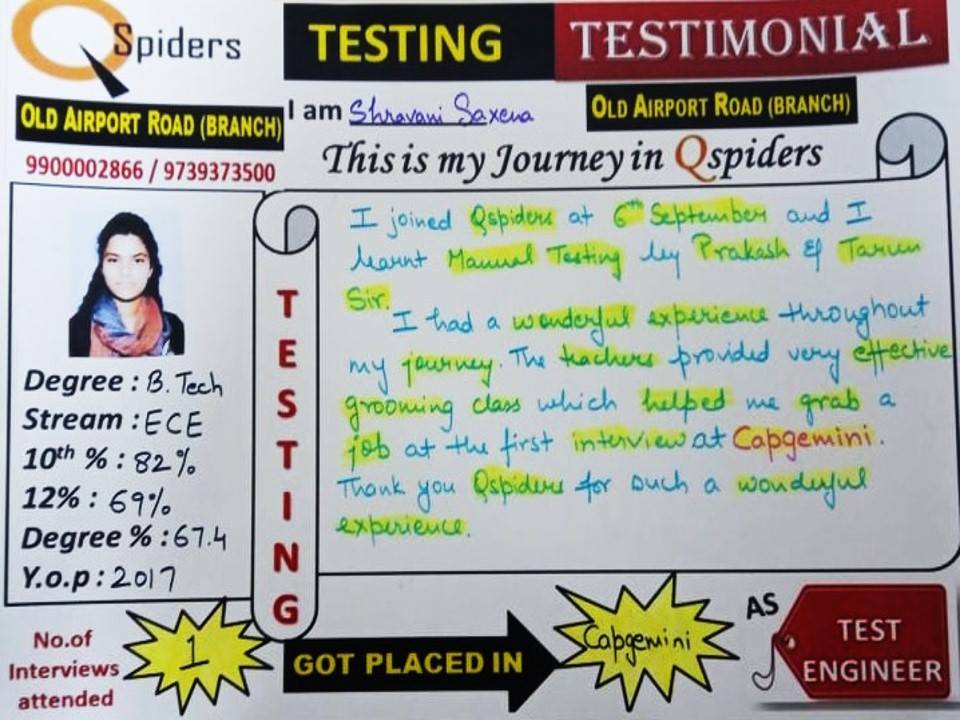 QSpiders
TESTING TESTIMONIAL
OLD AIRPORT ROAD (BRANCH)
I am Shravani Saxena
OLD AIRPORT ROAD (BRANCH)
9900002866 / 9739373500
This is my Journey in Qspiders
I joined Qspiders at 6th September and I
learnt Manual Testing by Prakash & Tarun
Sir.
I had a wonderful experience throughout
my journey. The teachers provided very effective
grooming class which helped me grab a
job at the first interview at Capgemini.
Thank you Qspiders for such a wonderful
experience.
TESTING
Degree : B. Tech
Stream : ECE
10th % : 82%
12% : 69%
Degree % : 67.4
Y.o.p : 2017
No.of
Interviews
attended
1
GOT PLACED IN
Capgemini
AS
TEST
ENGINEER